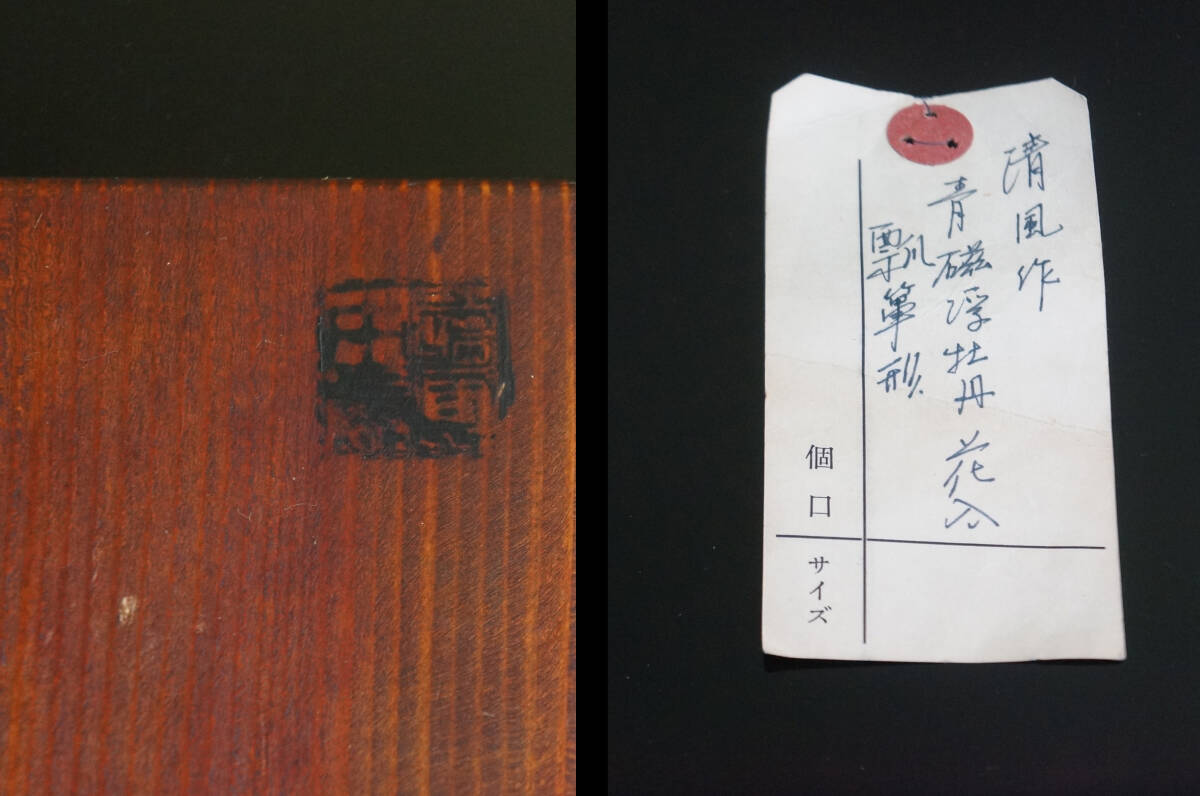 清風作
青磁浮牡丹花入
瓢箪形
個口
サイズ